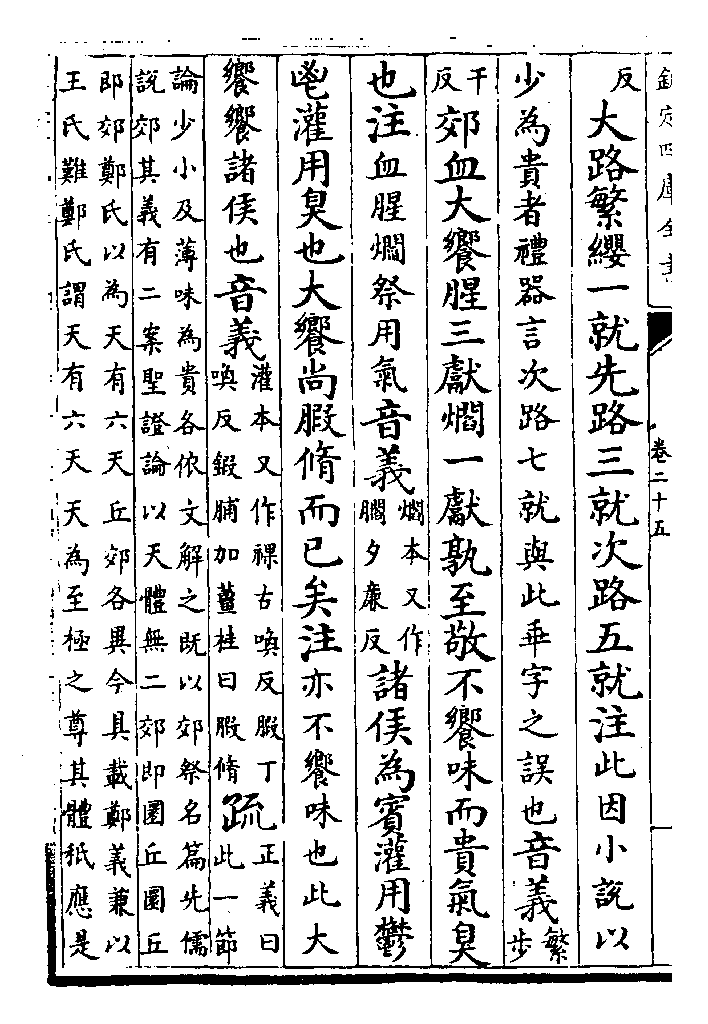 欽定四庫全書
卷二十五
反大路繁纓一就先路三就次路五就注此因小説以
少為貴者禮器言次路七就與此乖字之誤也音義繁步
干反郊血大饗腥三獻爓一獻孰至敬不饗味而貴氣臭
也注血腥爓祭用氣音義爓本又作夕廉反諸侯為賓灌用鬱
鬯灌用臭也大饗尚腶脩而已矣注亦不饗味也此大
饗饗諸侯也音義灌本又作祼古喚反腶丁喚反鍛脯加薑桂曰腶脩疏正義曰此一節
論少小及薄味為貴各依文解之既以郊祭名篇先儒
説郊其義有二案聖證論以天體無二郊即圜丘圜丘
即郊鄭氏以為天有六天丘郊各異今具載鄭義兼以
王氏難鄭氏謂天有六天天為至極之尊其體秪應是